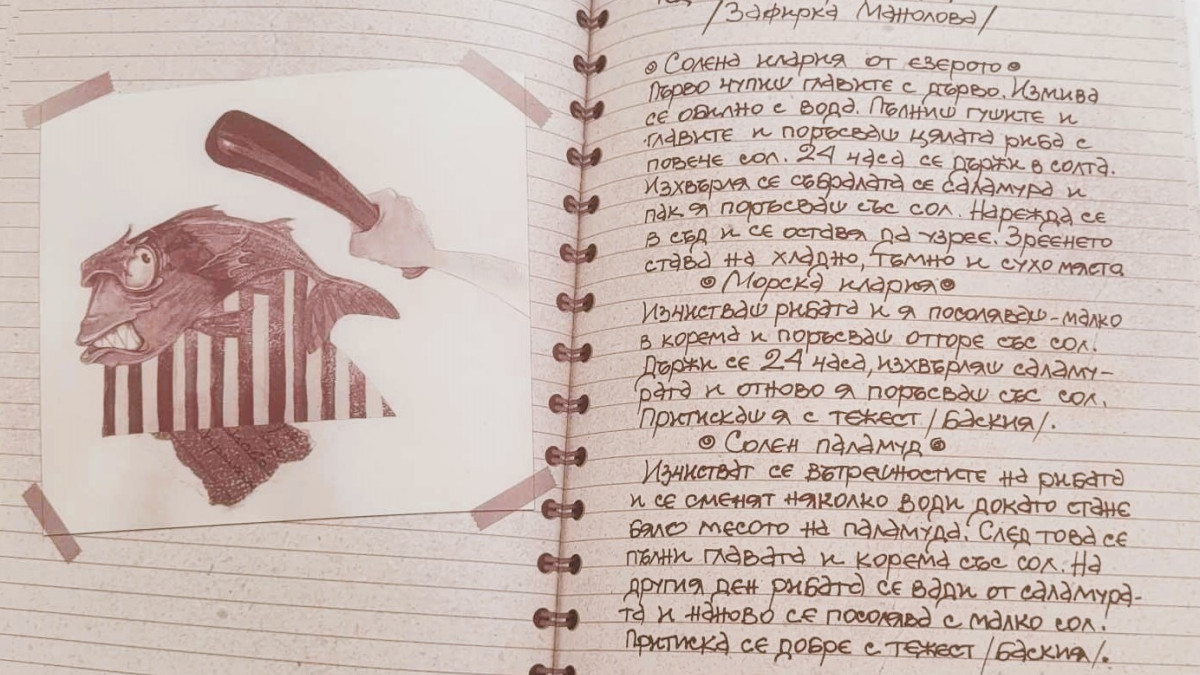 /Зафирка Манолова/
Солена клария от езерото
Първо чупиш главите с дърво. Измива
се обилно с вода. Пълниш гушите и
главите и поръсваш цялата риба с
повече сол. 24 часа се държи в солта.
Изхвърля се събралата се саламура и
пак я поръсваш със сол. Нарежда се
в съд и се оставя да узрее. Зреенето
става на хладно, тъмно и сухо място
Морска клария
Изчистваш рибата и я посоляваш-малко
в корема и поръсваш отгоре със сол.
Държи се 24 часа, изхвърляш саламу-
рата и отново я поръсваш със сол.
Притискаш я с тежест /баския/.
Солен паламуд
Изчистват се вътрешностите на рибата
и се сменят няколко води докато стане
бяло месото на паламуда. След това се
пълни главата и корема със сол. На
другия ден рибата се вади от саламура-
та и наново се посолява с малко сол.
Притиска се добре с тежест /баския/.